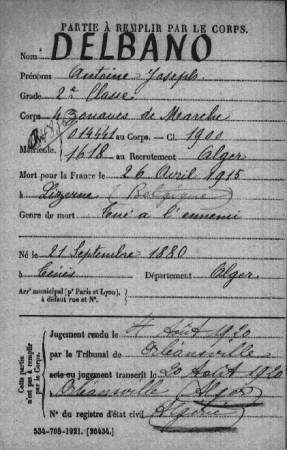 PARTIE À REMPLIR PAR LE CORPS.
Nom DELBANO
Prénoms Antoine Joseph
Grade 2e Classe
Corps 4 Zouaves de Marche
Matricule. 014441 au Corps. — Cl. 1900
1618 au Recrutement Alger
Mort pour la France le 26 Avril 1915
à Lizerne (Belgique)
Genre de mort Tué à l'ennemi
Né le 21 Septembre 1880
à Ténès Département Alger
Arrt municipal (pr Paris et Lyon), à défaut rue et N°.
Cette partie n'est pas à remplir par le Corps.
Jugement rendu le 4 Août 1920
par le Tribunal de Orléansville
acte ou jugement transcrit le 20 Août 1920
à Orléansville (Alger)
N° du registre d'état civil Algérie
534-708-1921. [26434.]